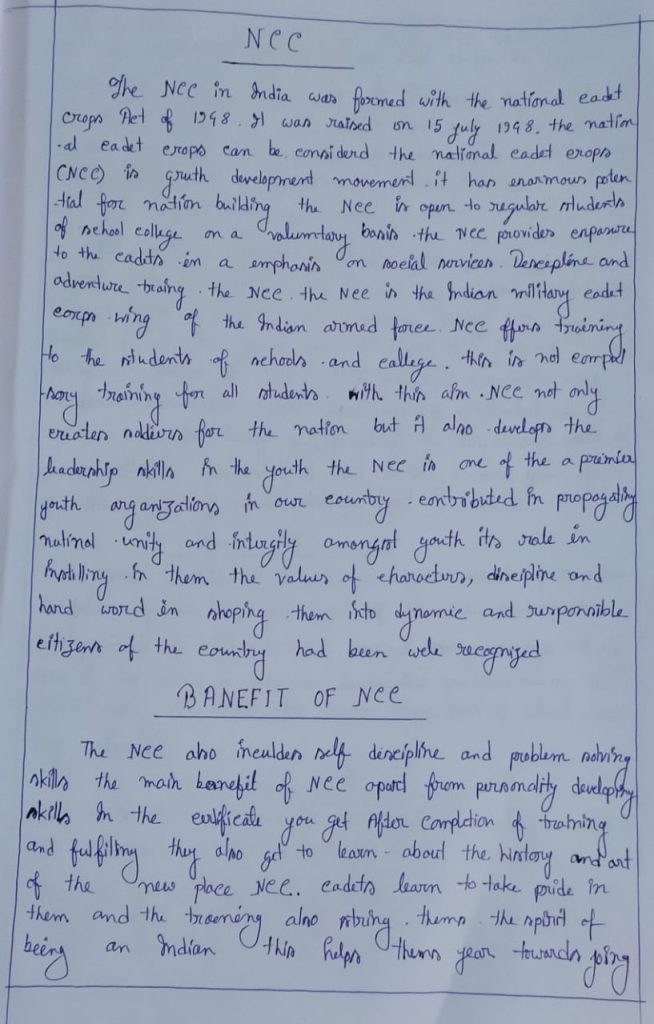 NCC
The NCC in India was formed with the national cadet
crops Act of 1948. It was raised on 15 july 1948. the nation
-al cadet crops can be considerd the national cadet crops
(NCC) is gruth development movement. it has enarmous poten
-tial for nation building the NCC is open to regular students
of school college on a valumtary basis. the NCC provides enpasure
to the cadits in a emphasis on social services. Descipline and
adventure traing. the NCC. the NCC is the Indian military cadet
corps wing of the Indian armed force. NCC ffers training
to the students of schools and callege. this is not compul
-sory training for all students. with this aim. NCC not only
creates soldiers for the nation but it also develops the
leadership skills in the youth the NCC is one of the a premier
youth organizations in our country. contributed in propogating
natinal unity and intergity amongst youth its role in
instilling in them the values of characters, discipline and
hard word in shoping them into dynamic and responsible
citizens of the country had been wele recognized
BANEFIT OF NCC
The NCC also inculdes self discipline and problem solving
skills the main banefit of NCC apart from personality developing
skills In the certificate you get After completion of training
and fulfilling they also get to learn - about the history and art
of the new place NCC. cadets learn to take pride in
them and the traening also string. thems. the spirit of
being an Indian this helps thems year towards joing